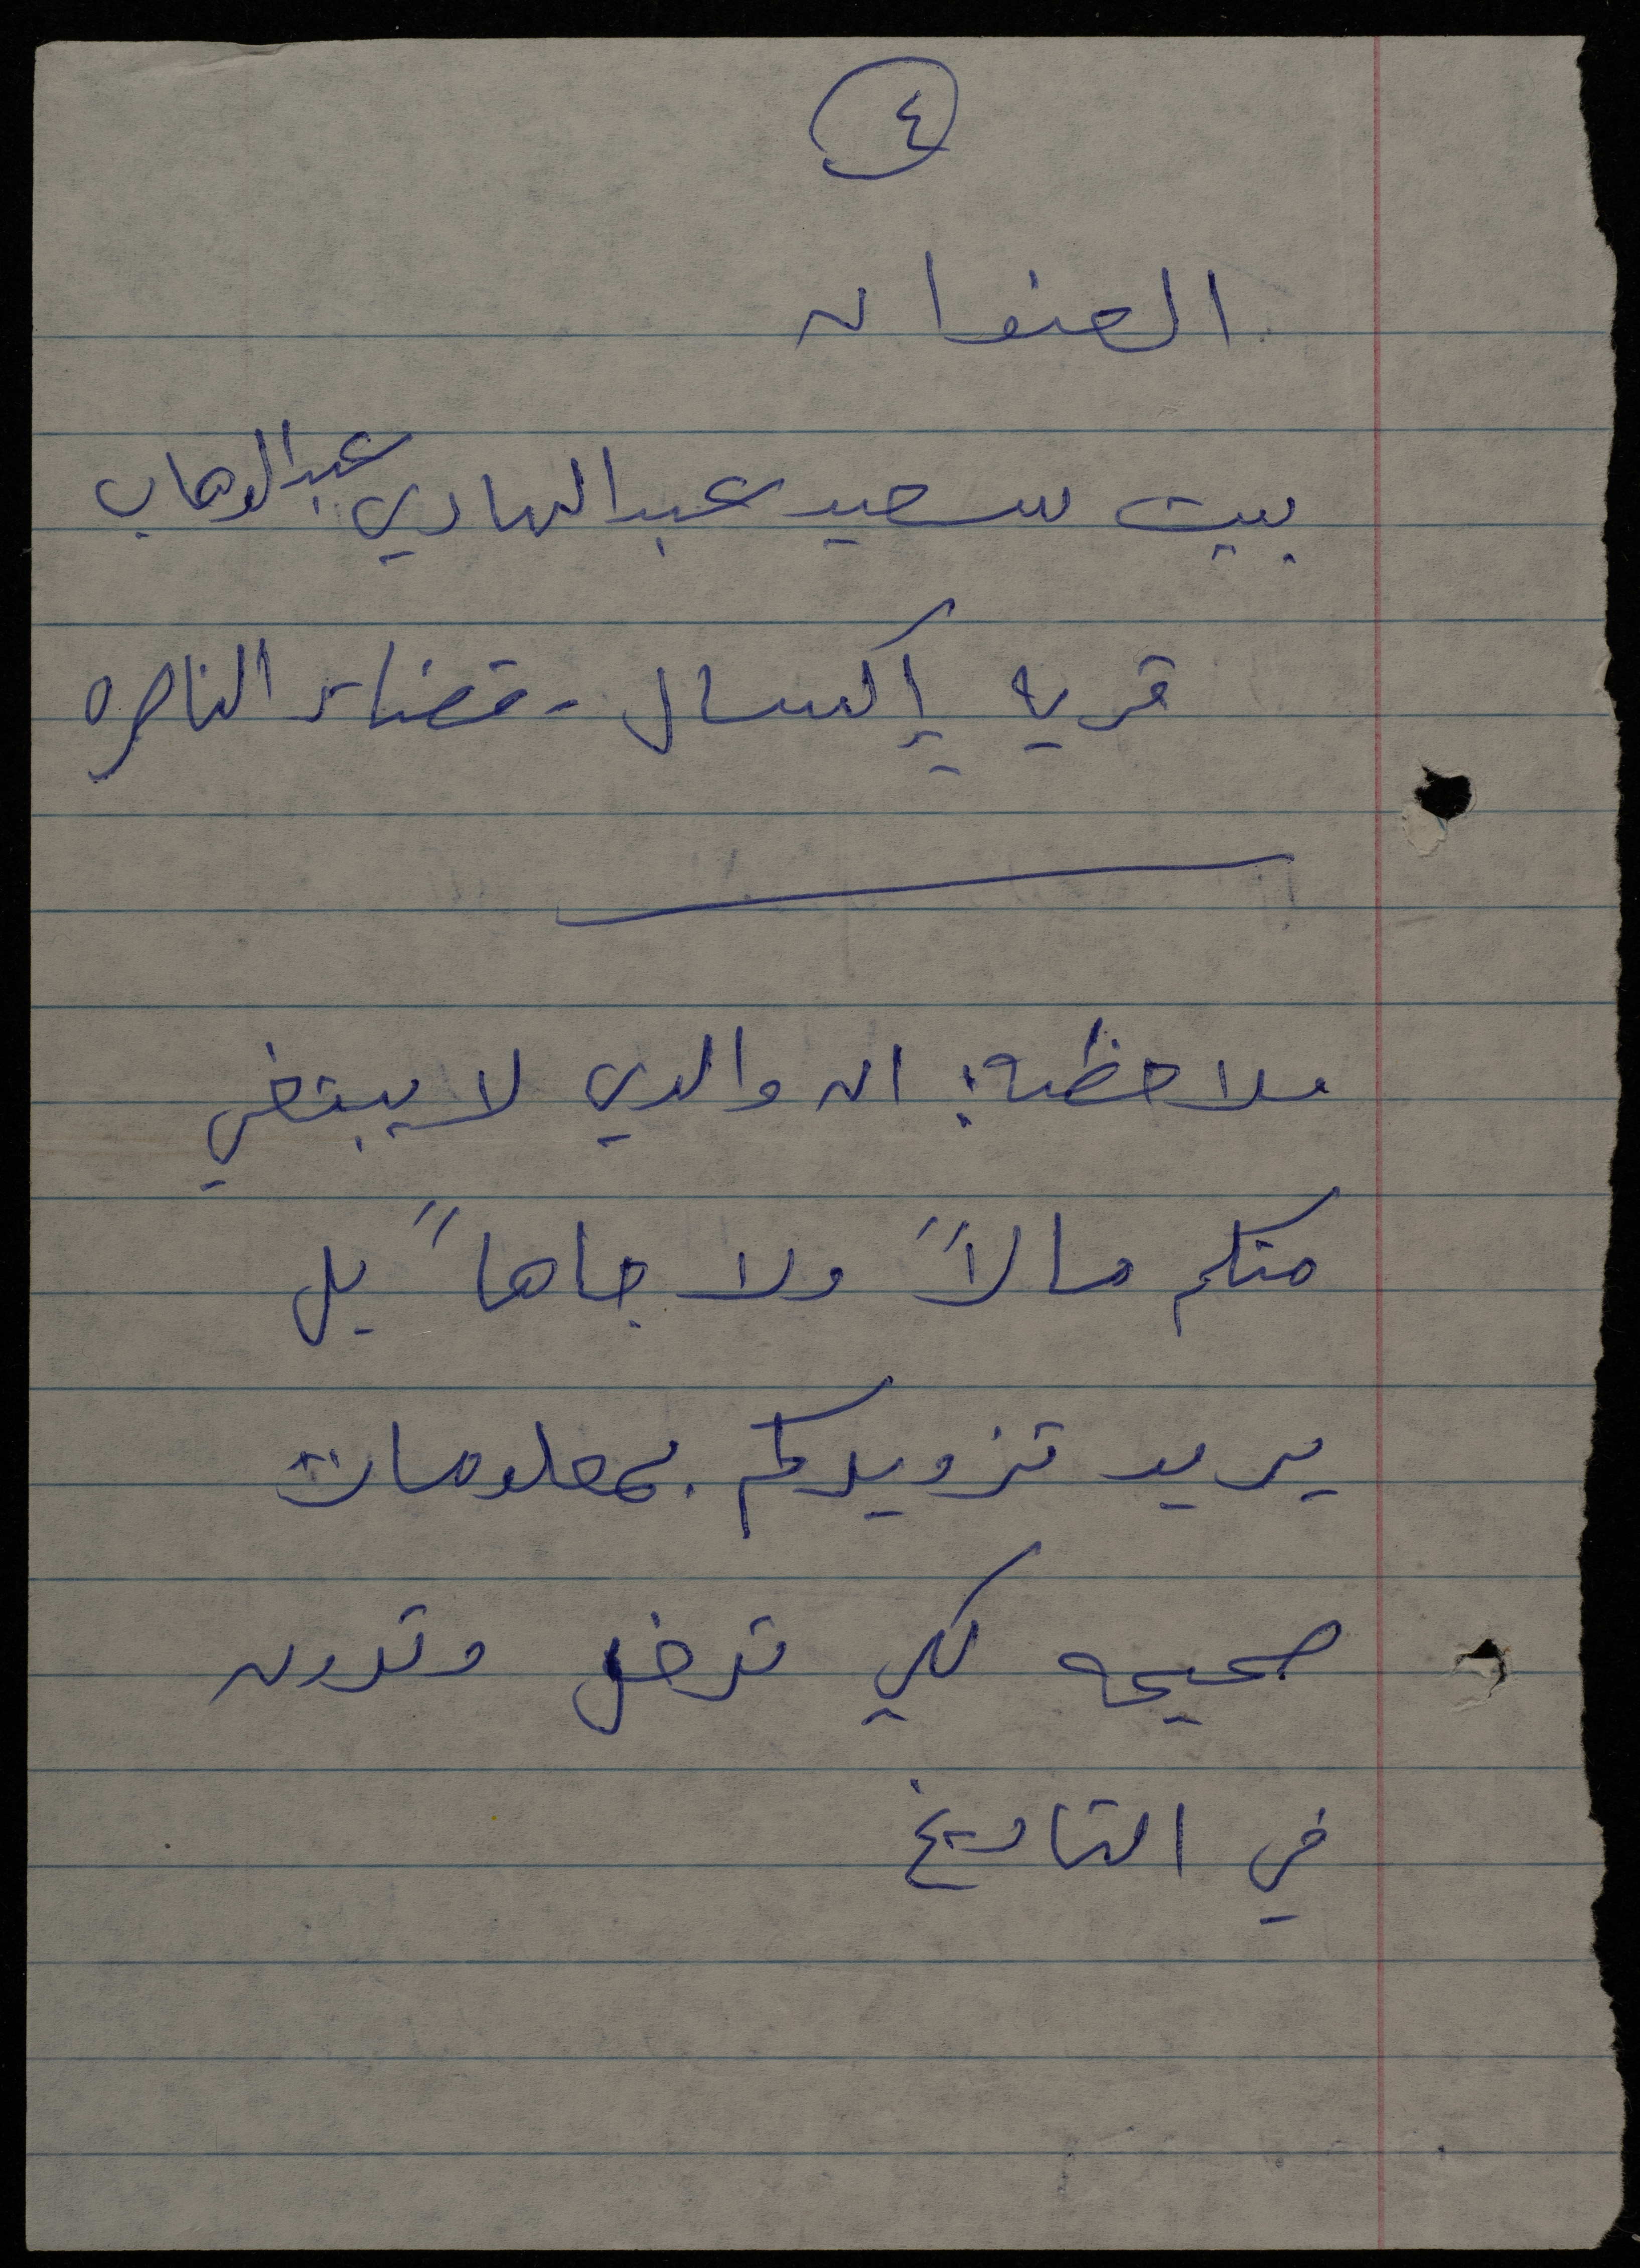 ٤
العنوان
بيت سعيد عبد الهادي عبد الوهاب
قريه إكسال - قضاء الناصره
ملاحظه: ان والدي لا يبتغي
منكم مالاً ولا جاهاً بل
يريد تزويدكم بمعلومات
صحيحه لكي تدخل وتدون
في التاريخ